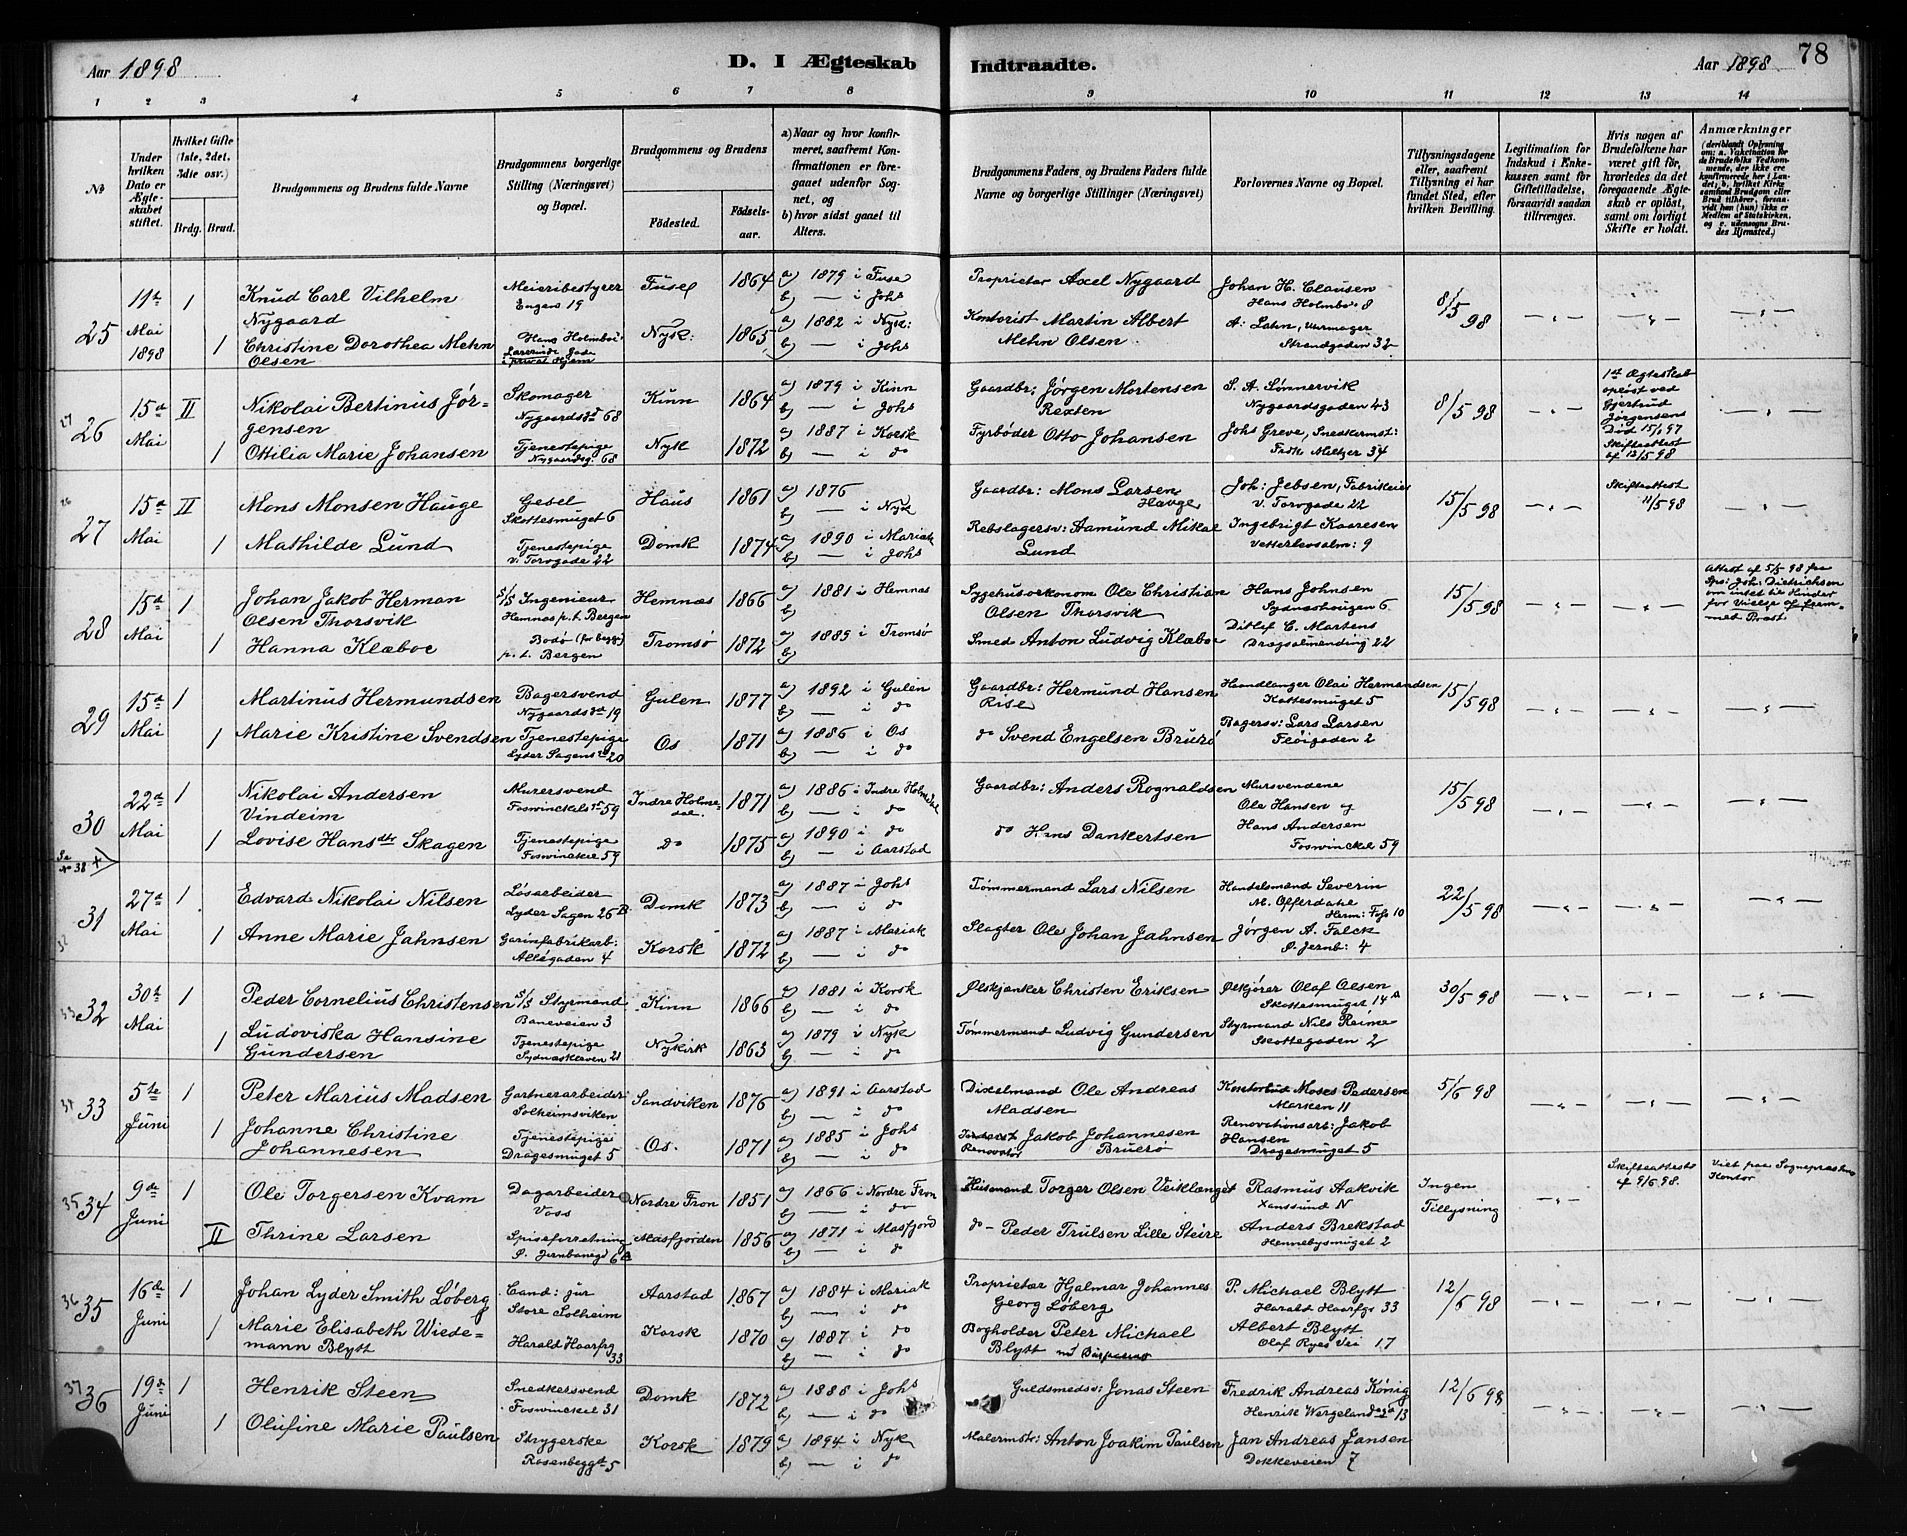 Aar 1898
D. I Ægteskab
Indtraadte.
Aar 1898
78
1 2 3 4 5 6 7 8 9 10 11 12 13 14
№
Under hvilken Dato er Ægteskabet stiftet.
Hvilket Gifte (1ste, 2det, 3die osv.)
Brdg. Brud.
Brudgommens og Brudens fulde Navne
Brudgommens borgerlige Stilling (Næringsvei) og Bopæl.
Brudgommens og Brudens
Fødested. Fødselsaar.
a) Naar og hvor konfirmeret, saafremt Konfirmationen er foregaaet udenfor Sognet, og
b) hvor sidst gaaet til Alters.
Brudgommens Faders og Brudens Faders fulde Navne og borgerlige Stillinger (Næringsvei)
Forlovernes Navne og Bopæl.
Tillysningsdagene eller, saafremt Tillysning ei har fundet Sted, efter hvilken Bevilling.
Legitimation for Indskud i Enkekassen samt for Giftetilladelse, forsaavidt saadan tiltrænges.
Hvis nogen af Brudefolkene har været gift før, hvorledes da det foregaaende Ægteskab er opløst, samt om lovligt Skifte er holdt.
Anmærkninger (deriblandt Oplysning om: a. Vakcination for de Brudefolks Vedkommende, der ikke ere konfirmerede her i Landet; b. hvilket Kirkesamfund Brudgom eller Brud tilhører, forsaavidt han (hun) ikke er Medlem af Statskirken, og c. udensogns Brudes Hjemsted.)
25
11te Mai 1898
1
Knud Carl Vilhelm Nygaard
Meieribestyrer
Engen 19
Fuse
1864
a) 1879 i Fuse
b) — i Johs
Proprietær Axel Nygaard
Johan H. Clausen
Hans Holmbo: 8
8/5 98
1
Christine Dorothea Mehn Olsen
Hans Holmboe Gade
Lærerinde
i privat Hjem
Nyk:
1865
a) 1882 i Nyk:
b) — i Johs
Kontorist Martin Albert Mehn Olsen
A: Lahn, Uurmager
Strandgaden 32
27
26
15de Mai
II
Nikolai Bertinus Jørgensen
Skomager
Nygaardsgd 68
Kinn
1864
a) 1879 i Kinn
b) — i Johs
Gaardbr: Jørgen Mortensen Rexten
S. A. Sømmervik
Nygaardsgaden 43
8/5 98
1st Ægteskab opløst ved Gjertrud Jørgensens Død 15/6 97
Skifteattest af 12/5 98
1
Ottilia Marie Johansen
Tjenestepige
Nygaardsg. 68
Nyk
1872
a) 1887 i Korsk
b) — i do
Fyrbøder Otto Johansen
Johs Greve, Snedkermst:
Fredr. Meltzer 34
26
27
15de Mai
II
Mons Monsen Hauge
Gesel
Skottesmuget 6
Haus
1861
a) 1876
b) — i Nyk
Gaardbr: Mons Larsen Hauge
Joh: Jebsen, Fabrikeier
V. Torvgade 22
15/5 98
Skifteattest 11/5 98
1
Mathilde Lund
Tjenestepige
V. Torvgade 22
Domk
1874
a) 1890 i Mariak
b) — i Johs
Rebslagersv: Aamund Mikal Lund
Ingebrigt Kaaresen
Vetterlevsalm: 9
28
15de Mai
1
Johan Jakob Herman Olsen Thorsvik
S/S Ingeniør
Hemnæs p.t. Bergen
Hemnæs
1866
a) 1881 i Hemnæs
b)
Sygehusøkonom Ole Christian Olsen Thorsvik
Hans Johnsen
Sydneshaugen 6
15/5 98
Attest af 5/5 98 fra Sps: Joh: Dietrichsen om intet til Hinder for Vielse af fremmed Præst.
1
Hanna Klæboe
Bodø (for begge)
p. t. Bergen
Tromsø
1872
a) 1885 i Tromsø
b)
Smed Anton Ludvig Klæboe
Ditlef C. Martens
Dragsalmending 22
29
15de Mai
1
Martinus Hermundsen
Bagersvend
Nygaardsgd 19
Gulen
1877
a) 1892 i Gulen
b) — i do
Gaardbr: Hermund Hansen Rise
Haandlanger Olai Hermandsen
Kottesmuget 5
15/5 98
1
Marie Kristine Svendsen
Tjenestepige
Lyder Sagensgd 20
Os
1871
a) 1886 i Os
b) — i do
do Svend Engelsen Bruerø
Bagersv: Lars Larsen
Fløigaden 2
30
22de Mai
1
Nikolai Andersen Vindeim
Murersvend
Foswinckelsgd 59
Indre Holmedal.
1871
a) 1886 i Indre Holmedal
b) — i do
Gaardbr: Anders Rognaldsen
Mursvendene
Ole Hansen og
15/5 98
1
Lovise Hansdtr Skagen
Tjenestepige
Foswinckel 59
do
1875
a) 1890 i do
b) — i Aarstad
do Hans Dankertsen
Hans Andersen
Foswinckel 59
Se No 38 +
31
27de Mai
1
Edvard Nikolai Nilsen
Løsarbeider
Lyder Sagen 26 B
Domk
1873
a) 1887 i Johs
b) — i do
Tømmermand Lars Nilsen
Handelsmand Severin M. Offerdahl
Herm: Foss 10
22/5 98
32
1
Anne Marie Jahnsen
Garinfabrikarb:
Allégaden 4
Korsk
1872
a) 1887 i Mariak
b) — i do
Slagter Ole Johan Jahnsen
Jørgen A. Falck
Ø. Jernb: 4
33
32
30te Mai
1
Peder Cornelius Christensen
S/S Styrmand
Baneveien 3
Kinn
1866
a) 1881 i Korsk
b) — i do
Ølskjænker Christen Eriksen
Ølkjører Olaf Olsen
Skottesmuget 14 A
30/5 98
1
Ludoviska Hansine Gundersen
Tjenestepige
Sydnæskleven 21
Nykirk
1863
a) 1879 i Nyk
b) — i do
Tømmermand Ludvig Gundersen
Styrmand Nils Reime
Skottegaden 2
34
33
5te Juni
1
Peter Marius Madsen
Gartnerarbeider
Solheimsviken
Sandviken
1876
a) 1891 i Aarstad
b) — i do
Dixelmand Ole Andreas Madsen
Kontorbud Moses Pedersen
Marken 11
5/6 98
1
Johanne Christine Johannesen
Tjenestepige
Dragesmuget 5
Os.
1871
a) 1885 i Johs
b) — i do
Renovatør Jakob Johannesen Bruerø
Renovationsarb: Jakob Hansen
Dragesmuget 5
35
34
9de Juni
1
Ole Torgersen Kvam
Dagarbeider
Voss
Nordre Fron
1851
a) 1866 i Nordre Fron
b) — i do
Husmand Torger Olsen Veiklænget
Rasmus Aakvik
Xanssund N
Ingen Tillysning
Skifteattest af 9/6 98.
Viet paa Sogneprestens Kontor
II
Thrine Larsen
Spiseforretning
Ø. Jernbanegd 6 B
Masfjorden
1856
a) 1871 i Masfjord
b) — i do
do – Peder Trulsen Lille Steire
Anders Brekstad
Hennebysmuget 2
36
35
16de Juni
1
Johan Lyder Smith Løberg
Cand: jur
Store Solheim
Aarstad
1867
a) 1884 i Mariak
b) — i do
Proprietær Hjalmar Johannes Georg Løberg
P. Michael Blytt
Harald Haarfgr 33
12/6 98
1
Marie Elisabeth Wiedemann Blytt
Harald Haarfrg 33
Korsk
1870
a) 1887 i do
b) — i do
Bogholder Peter Michael Blytt
Albert Blytt
Olaf Ryes Vei 17
37
36
19de Juni
1
Henrik Steen
Snedkersvend
Foswinckel 31
Domk
1872
a) 1888 i Johs
b) — i do
Guldsmedsv: Jonas Steen
Fredrik Andreas König
Henrik Wergelandsgd 13
12/6 98
1
Olufine Marie Paulsen
Strygerske
Rosenbeggt 5
Korsk
1879
a) 1894 i Nyk
b) — i do
Malermstr: Anton Joakim Paulsen
Jan Andreas Jansen
Dokkeveien 7